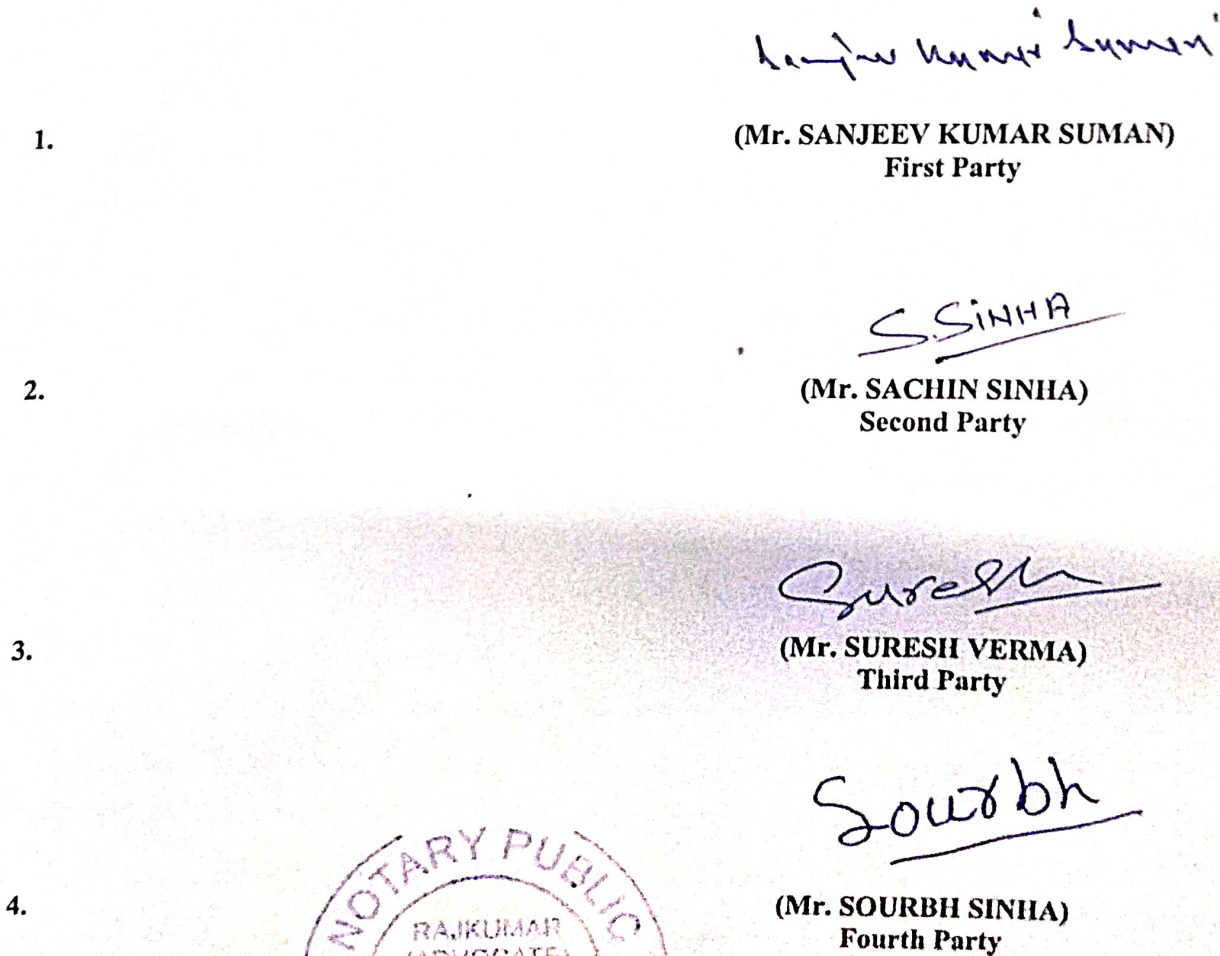 Sanjeev Kumar Suman
1.
(Mr. SANJEEV KUMAR SUMAN)
First Party
S.SiNHA
2.
(Mr. SACHIN SINHA)
Second Party
Suresh
3.
(Mr. SURESH VERMA)
Third Party
Sourbh
4.
(Mr. SOURBH SINHA)
Fourth Party
NOTARY PUBLIC
RAJKUMAR
(ADVOCATE)